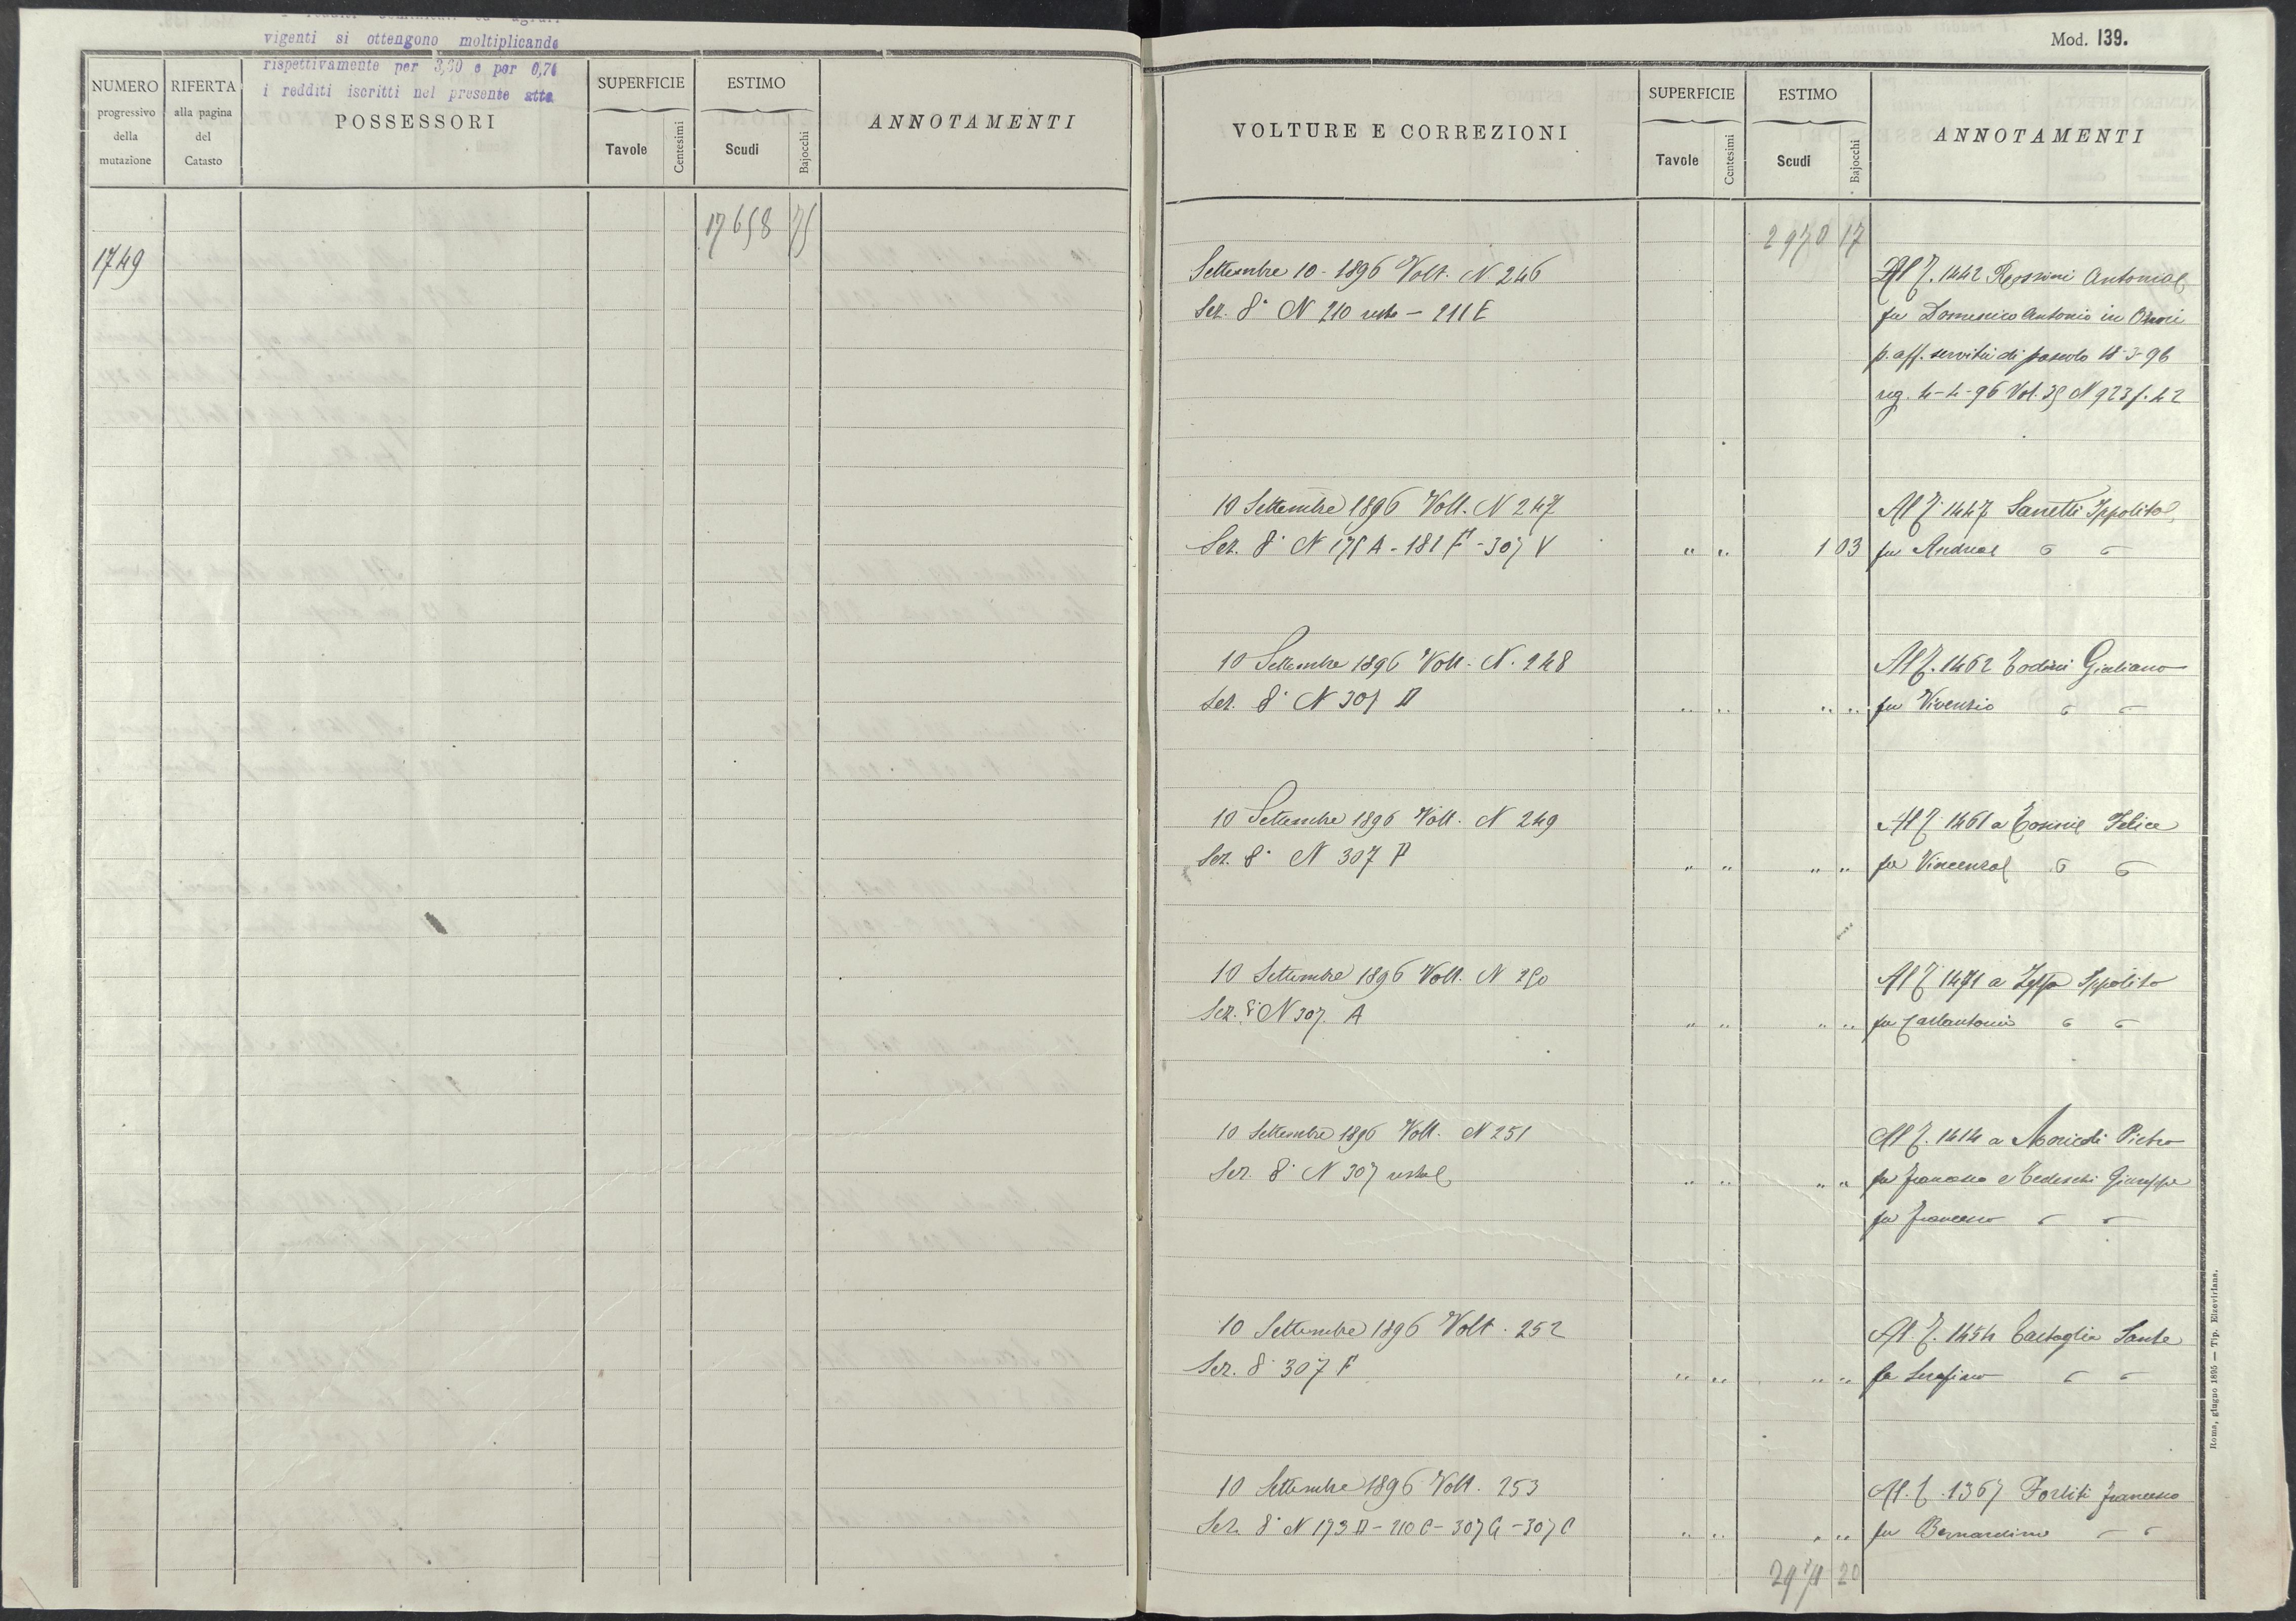 vigenti si ottengono moltiplicando
rispettivamente per 3,30 e per 0,70
i redditi iscritti nel presente atto
NUMERO
progressivo
della
mutazione
RIFERTA
alla pagina
del
Catasto
POSSESSORI
SUPERFICIE
Tavole
Centesimi
ESTIMO
Scudi
Bajocchi
ANNOTAMENTI
17658 75
1749
Mod. 139.
VOLTURE E CORREZIONI
SUPERFICIE
Tavole
Centesimi
ESTIMO
Scudi
Bajocchi
ANNOTAMENTI
2970 17
Settembre 10 - 1896 Volt. N. 246
Sez. 8ª N 210 resto - 211 E
Al f. 1442 Antonio
fu Domenico Antonio in
p. aff. servitù di pascolo 18-3-96
reg. 4-4-96 Vol. 35 N 923 f. 42
10 Settembre 1896 Volt. N 247
Sez. 8ª N 175 A - 181 F - 307 V
" " 1 03
Al f. 1447 Sanetti Ippolito
fu Andrea " "
10 Settembre 1896 Volt. N. 248
Sez. 8ª N 307 D
" " " "
Al f. 1462 Todini Giuliano
fu Vivenzio " "
10 Settembre 1896 Volt. N 249
Sez. 8ª N 307 P
" " " "
Al f. 1461 a Felice
fu Vincenzo " "
10 Settembre 1896 Volt. N 250
Sez. 8ª N 307 A
" " " "
Al f. 1471 a Zeppa Ippolito
fu Carlantonio " "
10 Settembre 1896 Volt. N 251
Sez. 8ª N 307 resto
" " " "
Al f. 1414 a Pietro
fu Francesco e Tedeschi Giuseppe
fu Francesco " "
10 Settembre 1896 Volt. 252
Sez. 8ª 307 F
" " " "
Al f. 1454 Battaglia Sante
fu Serafino " "
10 Settembre 1896 Volt. 253
Sez. 8ª N 173 D - 210 C - 307 G - 307 C
" " " "
Al f. 1367 Fortiti Francesco
fu Bernardino " "
2971 20
Roma, giugno 1895 — Tip. Elzeviriana.